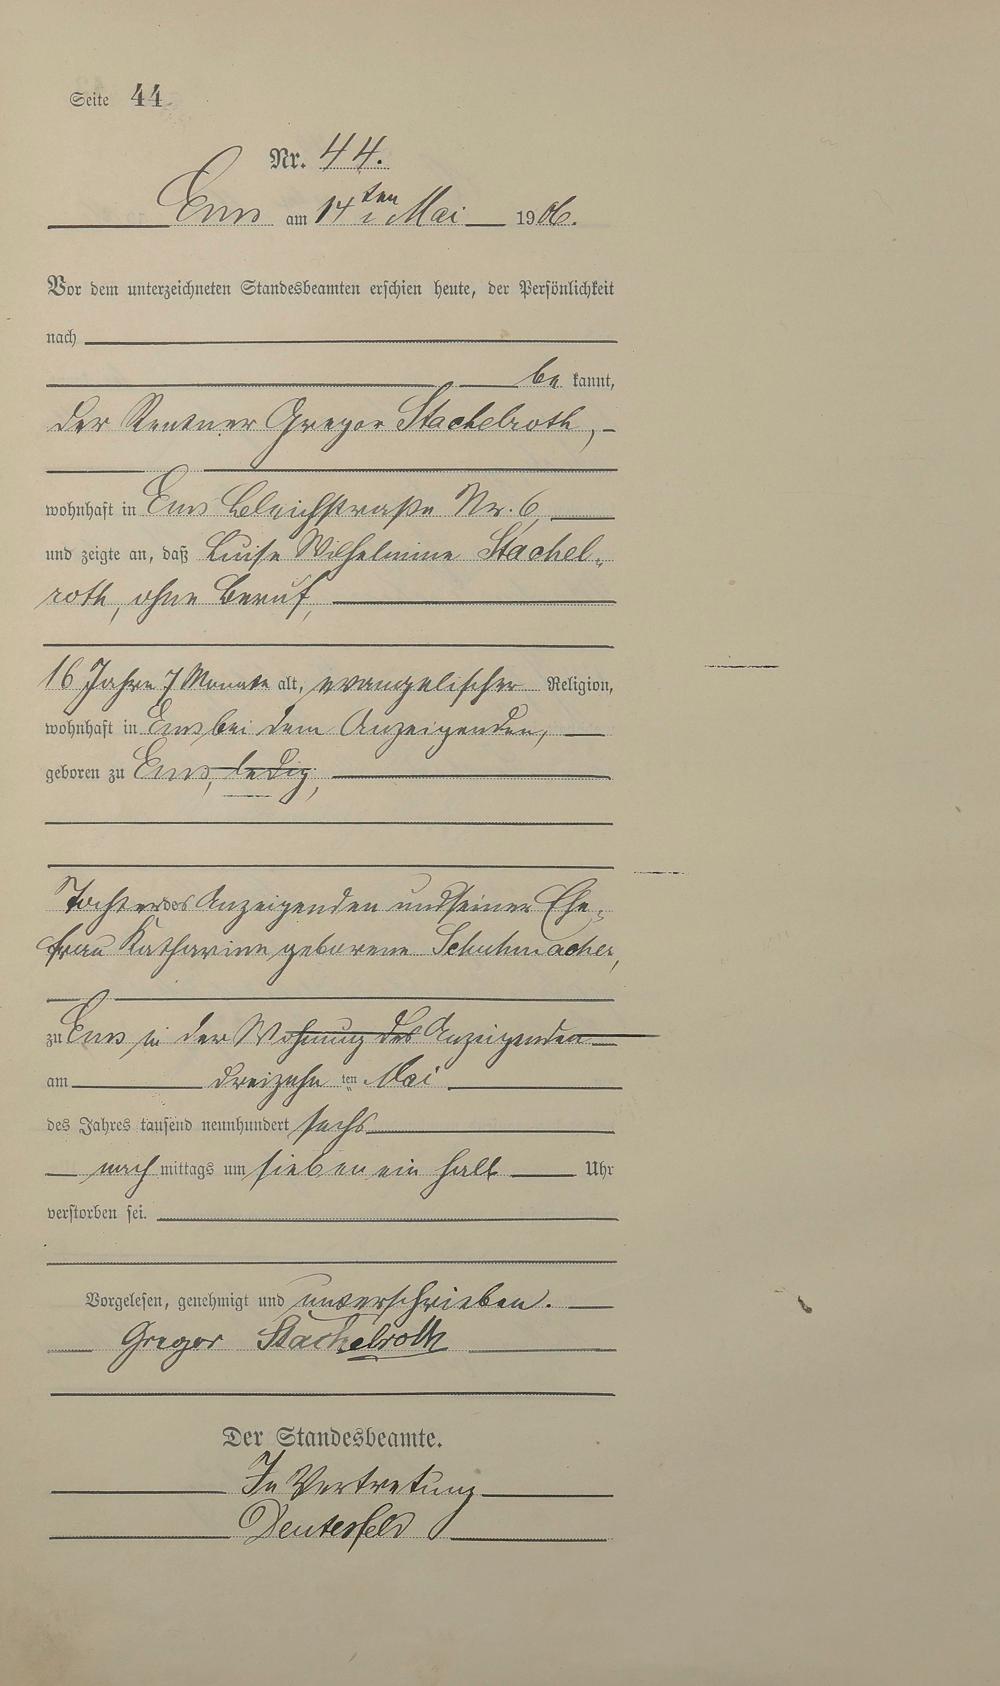 Seite 44
Nr. 44.
Ems am 14ten Mai 1906.
Vor dem unterzeichneten Standesbeamten erschien heute, der Persönlichkeit
nach
be kannt,
der Rentner Gregor Stachelroth,
wohnhaft in Ems Bleichstraße Nr. 6
und zeigte an, daß Luise Wilhelmine Stachel-
roth, ohne Beruf,
16 Jahre 7 Monate alt, evangelischer Religion,
wohnhaft in Ems bei dem Anzeigenden,
geboren zu Ems, ledig,
Tochter des Anzeigenden und seiner Ehe-
frau Katharine geborene Schuhmacher,
zu Ems in der Wohnung des Anzeigenden
am dreizehn ten Mai
des Jahres tausend neunhundert sechs
nach mittags um sieben ein halb Uhr
verstorben sei.
Vorgelesen, genehmigt und unterschrieben.
Gregor Stachelroth
Der Standesbeamte.
In Vertretung